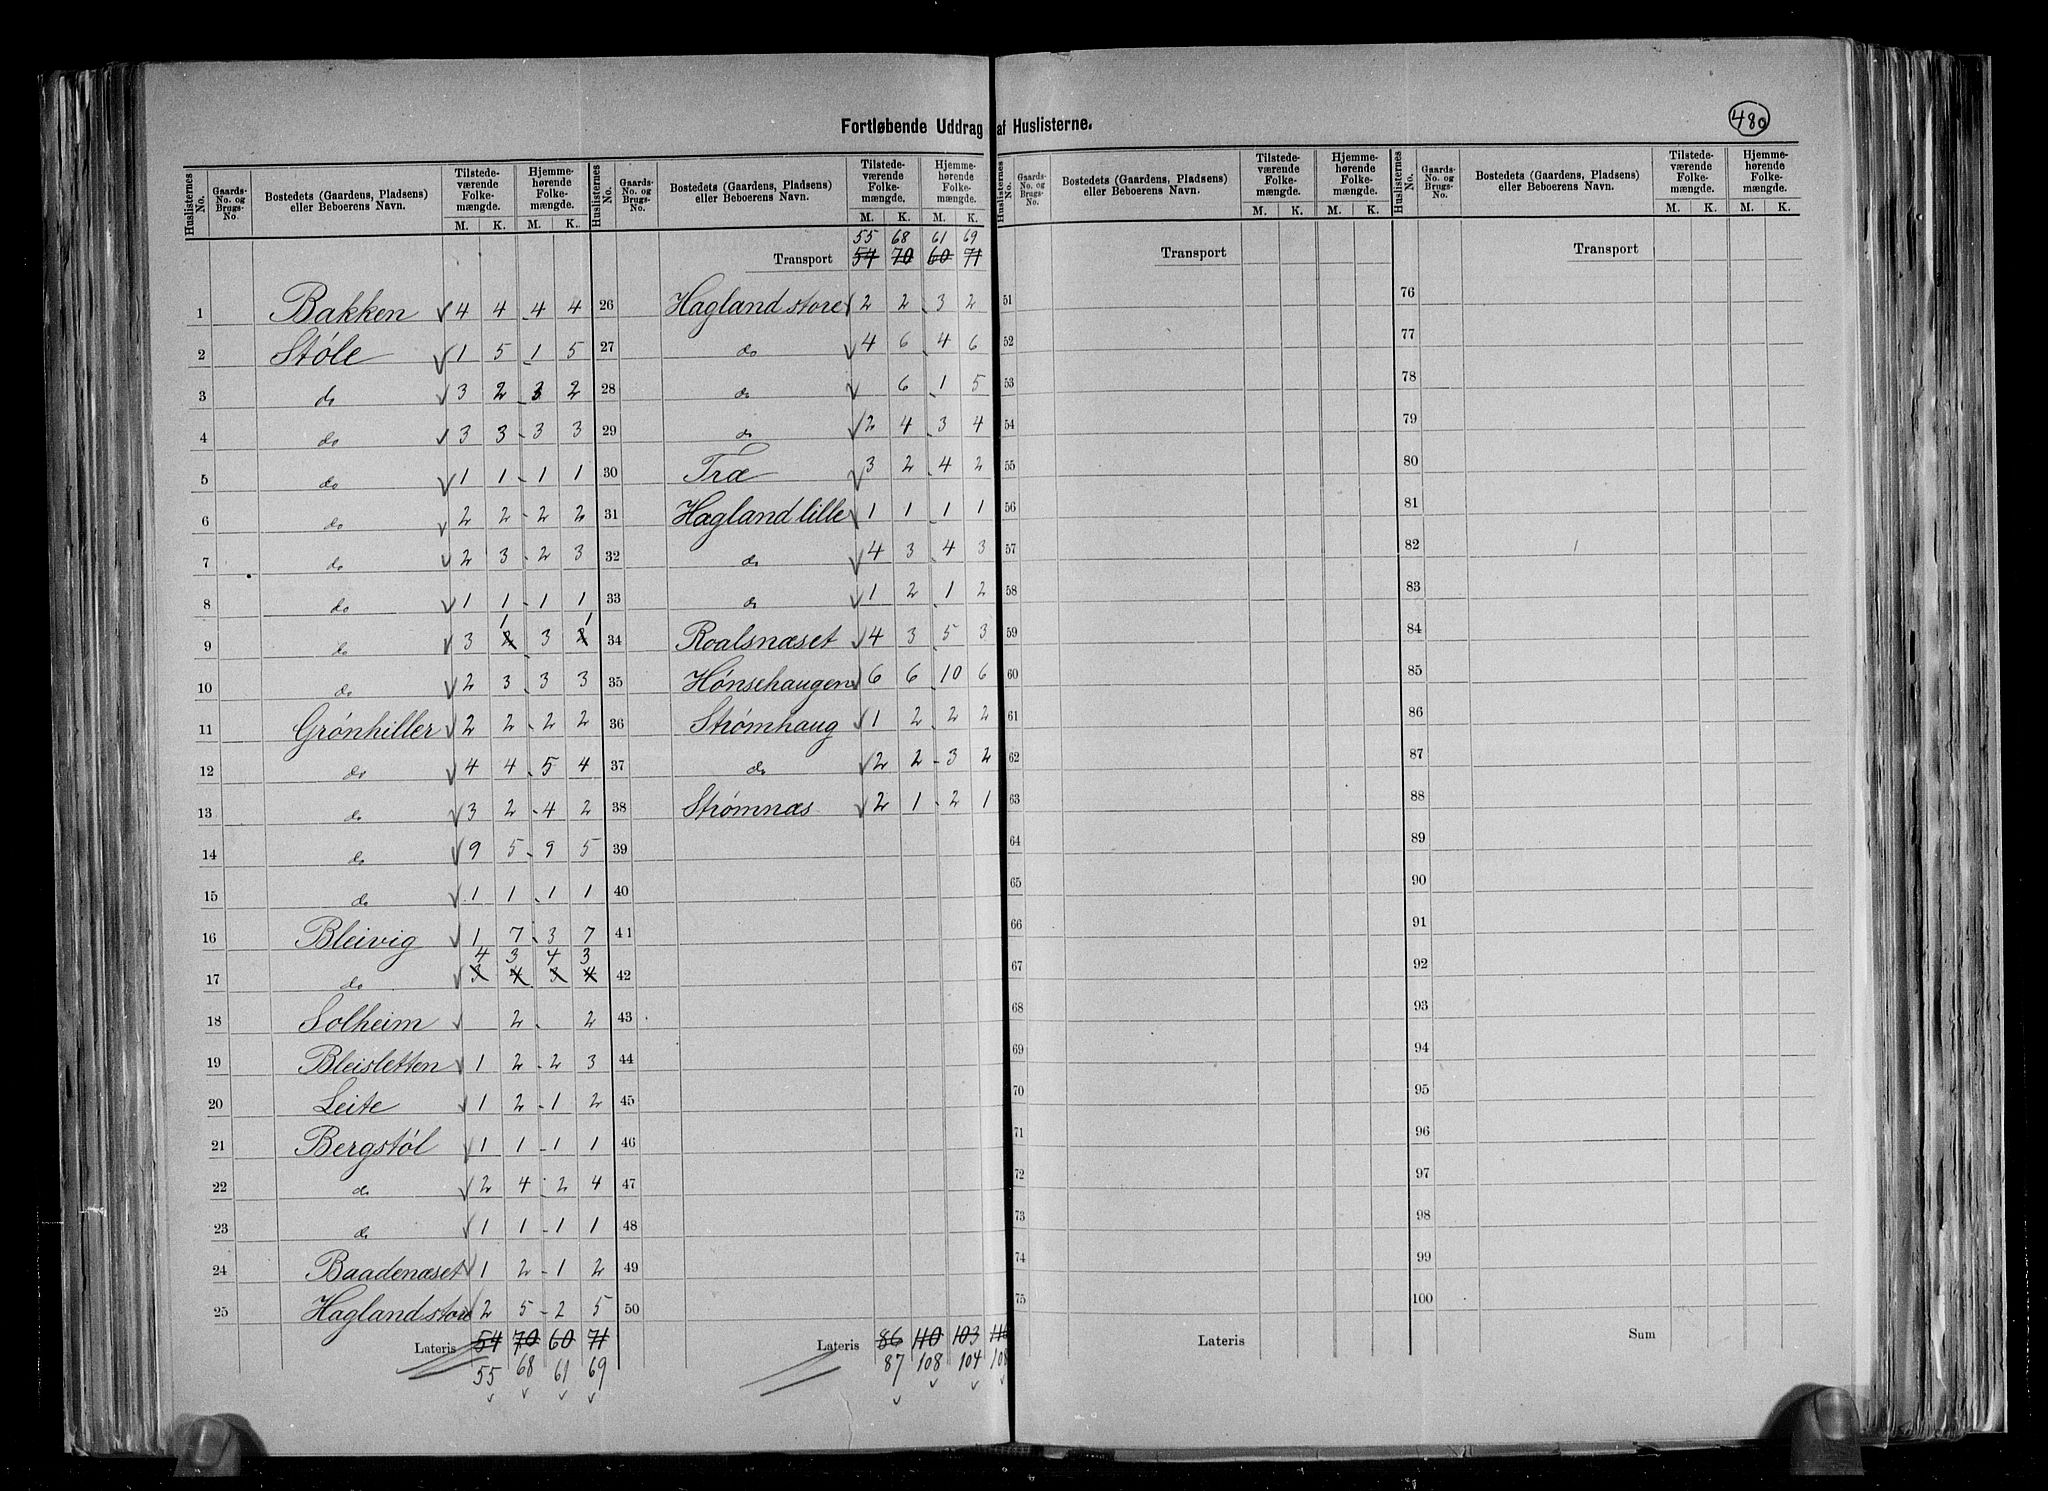 480
Fortløbende Uddrag af Huslisterne.
Huslisternes No. Gaards-No. og Brugs-No. Bostedets (Gaardens, Pladsens) eller Beboerens Navn. Tilstedeværende Folkemængde. M. K. Hjemmehørende Folkemængde. M. K.
1 Bakken √ 4 4 4 4
2 Støle √ 1 5 1 5
3 do √ 3 2 3 2
4 do √ 3 3 3 3
5 do √ 1 1 1 1
6 do √ 2 2 2 2
7 do √ 2 3 2 3
8 do √ 1 1 1 1
9 do √ 3 1 3 1
10 do √ 2 3 3 3
11 Grønhiller √ 2 2 2 2
12 do √ 4 4 5 4
13 do √ 3 2 4 2
14 do √ 9 5 9 5
15 do √ 1 1 1 1
16 Bleivig √ 1 7 3 7
4 3 4 3
17 do √ 3 4 3 4
18 Solheim √ 2 2
19 Bleisletten √ 1 2 2 3
20 Leite √ 1 2 1 2
21 Bergstøl √ 1 1 1 1
22 do √ 2 4 2 4
23 do √ 1 1 1 1
24 Baadenæset √ 1 2 1 2
25 Hagland store √ 2 5 2 5
Lateris 54 70 60 71
55 68 61 69
Huslisternes No. Gaards-No. og Brugs-No. Bostedets (Gaardens, Pladsens) eller Beboerens Navn. Tilstedeværende Folkemængde. M. K. Hjemmehørende Folkemængde. M. K.
55 68 61 69
Transport 54 70 60 71
26 Hagland store √ 2 2 3 2
27 do √ 4 6 4 6
28 do √ 6 1 5
29 do √ 2 4 3 4
30 Træ √ 3 2 4 2
31 Hagland lille √ 1 1 1 1
32 do √ 4 3 4 3
33 do √ 1 2 1 2
34 Roalsnæset √ 4 3 5 3
35 Hønsehaugen √ 6 6 10 6
36 Strømhaug √ 1 2 2 2
37 do √ 2 2 3 2
38 Strømnæs √ 2 1 2 1
39
40
41
42
43
44
45
46
47
48
49
50
Lateris 86 110 103 110
87 108 104 108
Huslisternes No. Gaards-No. og Brugs-No. Bostedets (Gaardens, Pladsens) eller Beboerens Navn. Tilstedeværende Folkemængde. M. K. Hjemmehørende Folkemængde. M. K.
Transport
51
52
53
54
55
56
57
58
59
60
61
62
63
64
65
66
67
68
69
70
71
72
73
74
75
Lateris
Huslisternes No. Gaards-No. og Brugs-No. Bostedets (Gaardens, Pladsens) eller Beboerens Navn. Tilstedeværende Folkemængde. M. K. Hjemmehørende Folkemængde. M. K.
Transport
76
77
78
79
80
81
82
83
84
85
86
87
88
89
90
91
92
93
94
95
96
97
98
99
100
Sum